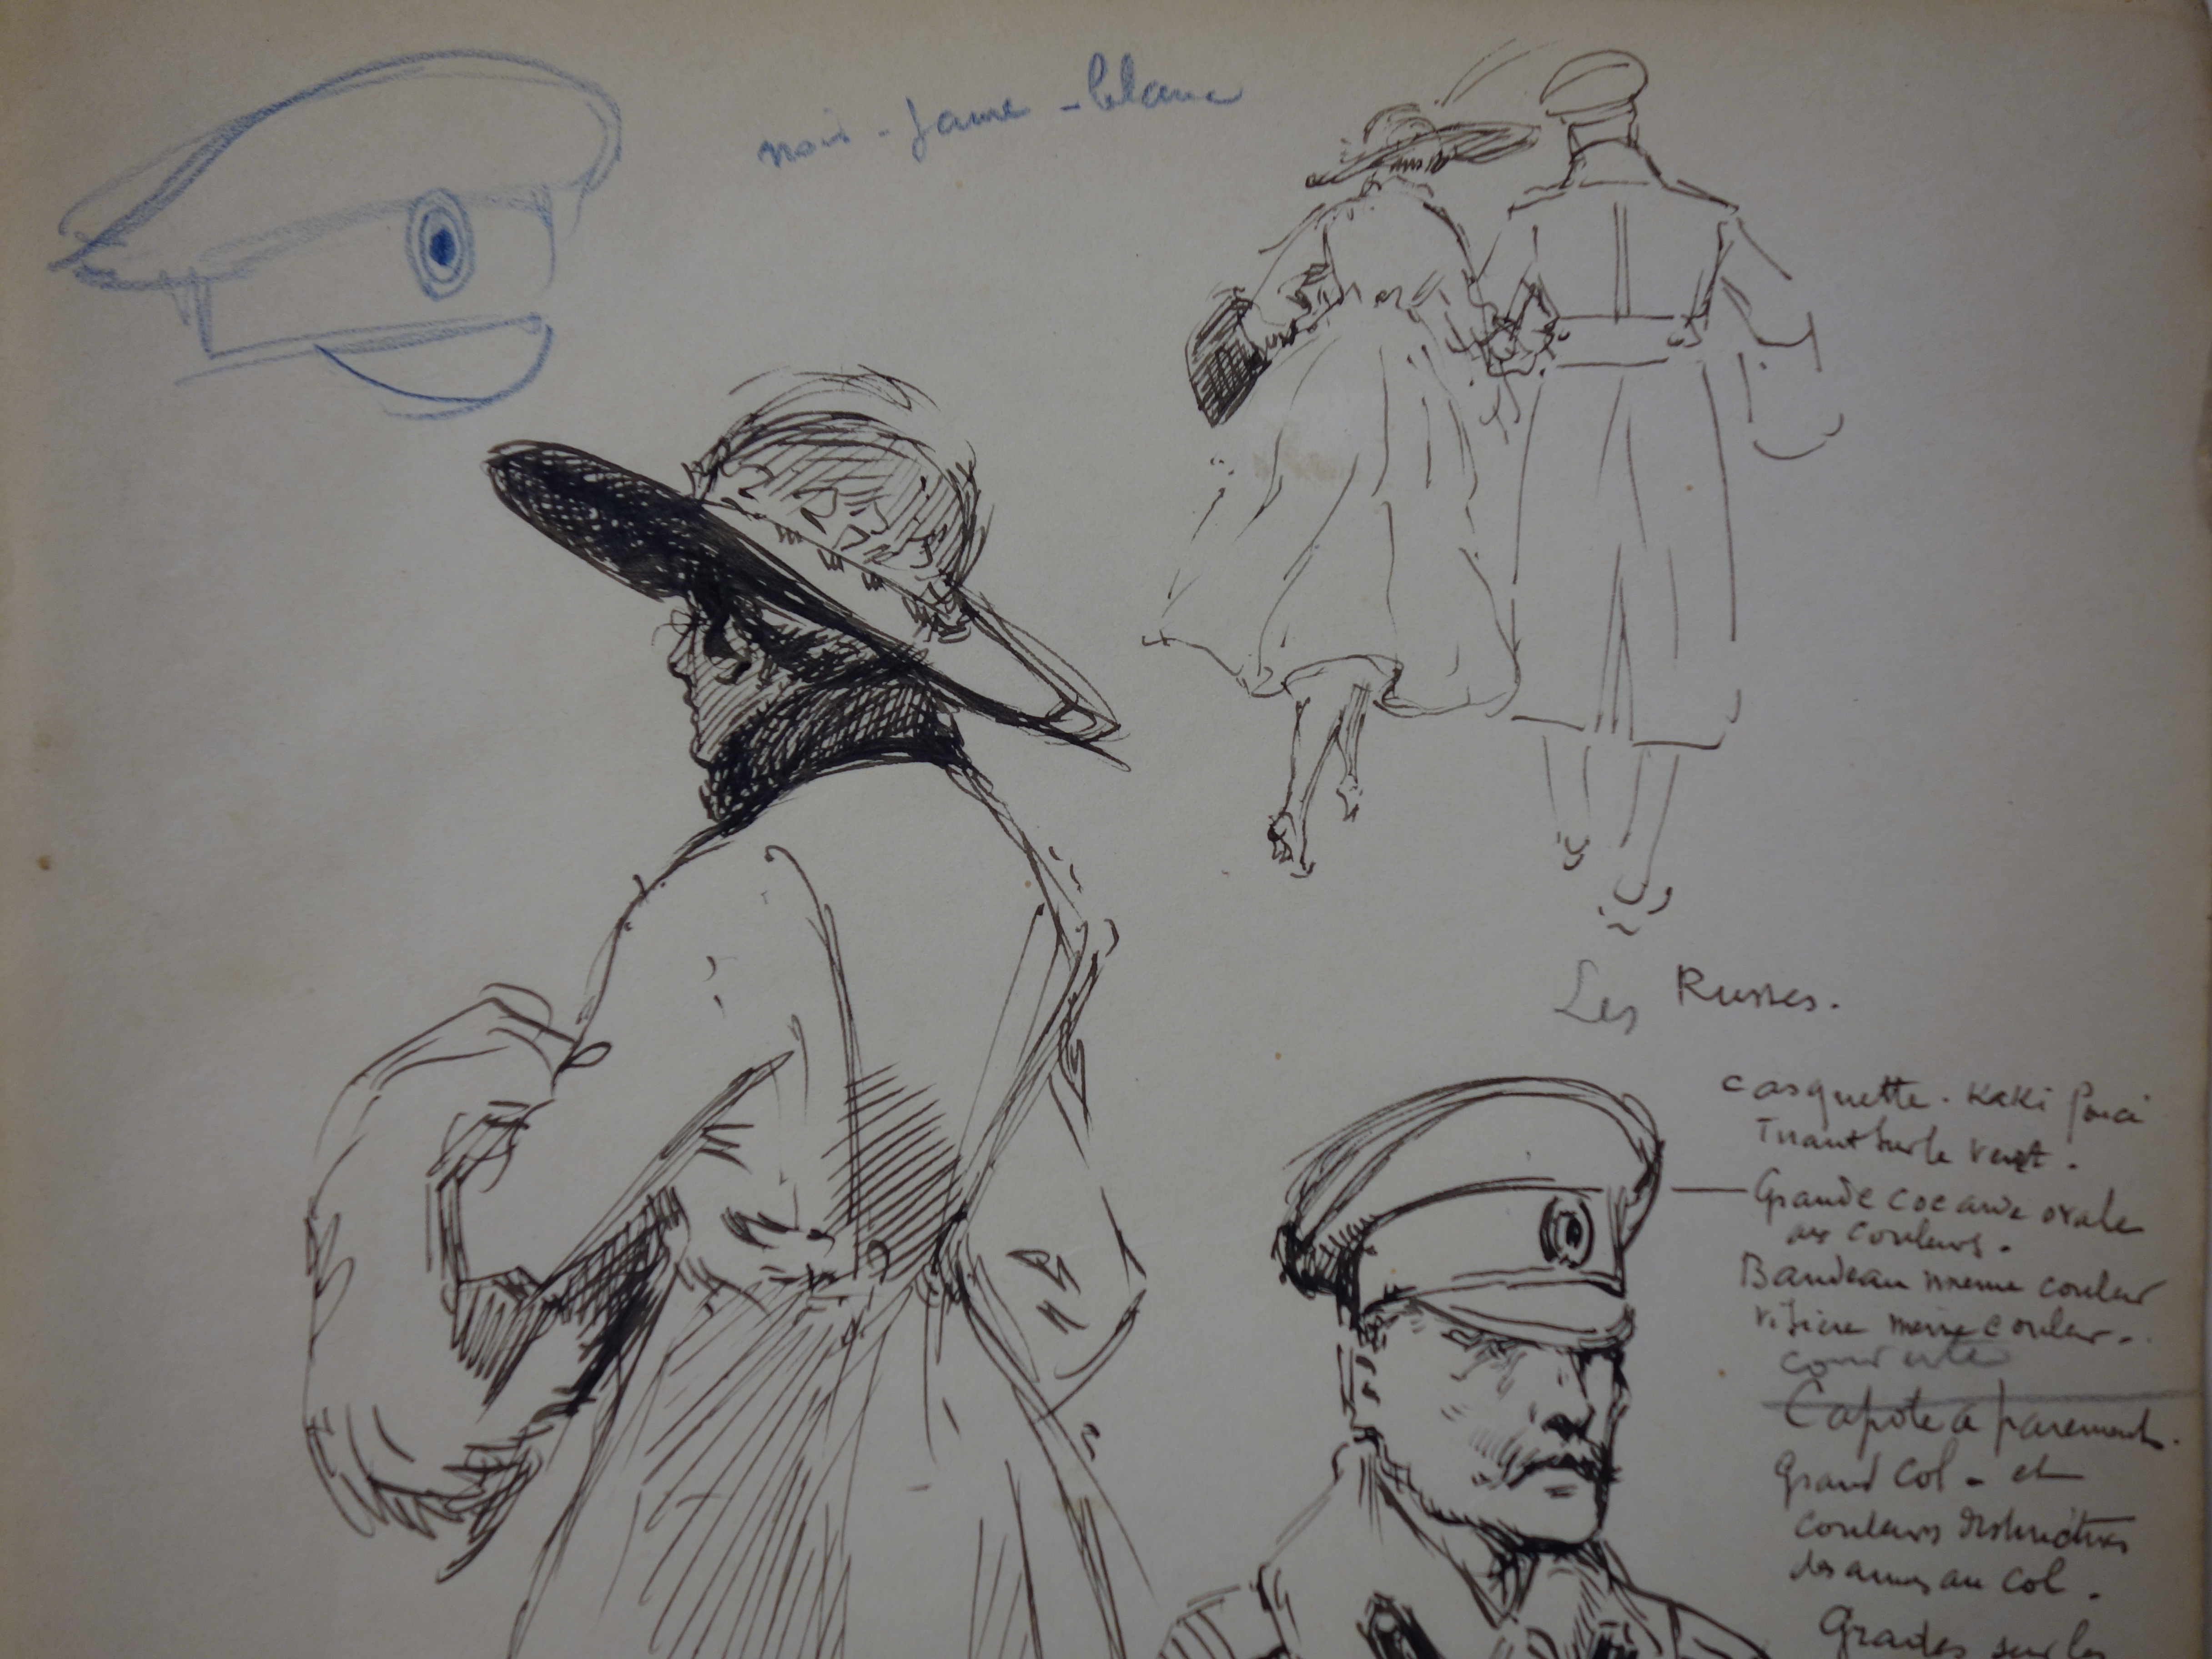 noir - jaune - blanc
Les Russes.
casquette. Kaki foncé
Tirant sur le vert.
Grande cocarde ovale
aux couleurs.
Bandeau meme couleur
visière meme couleur.
Capote à parements.
Grand Col - et
couleurs distinctives
des armes au col.
Grades sur les